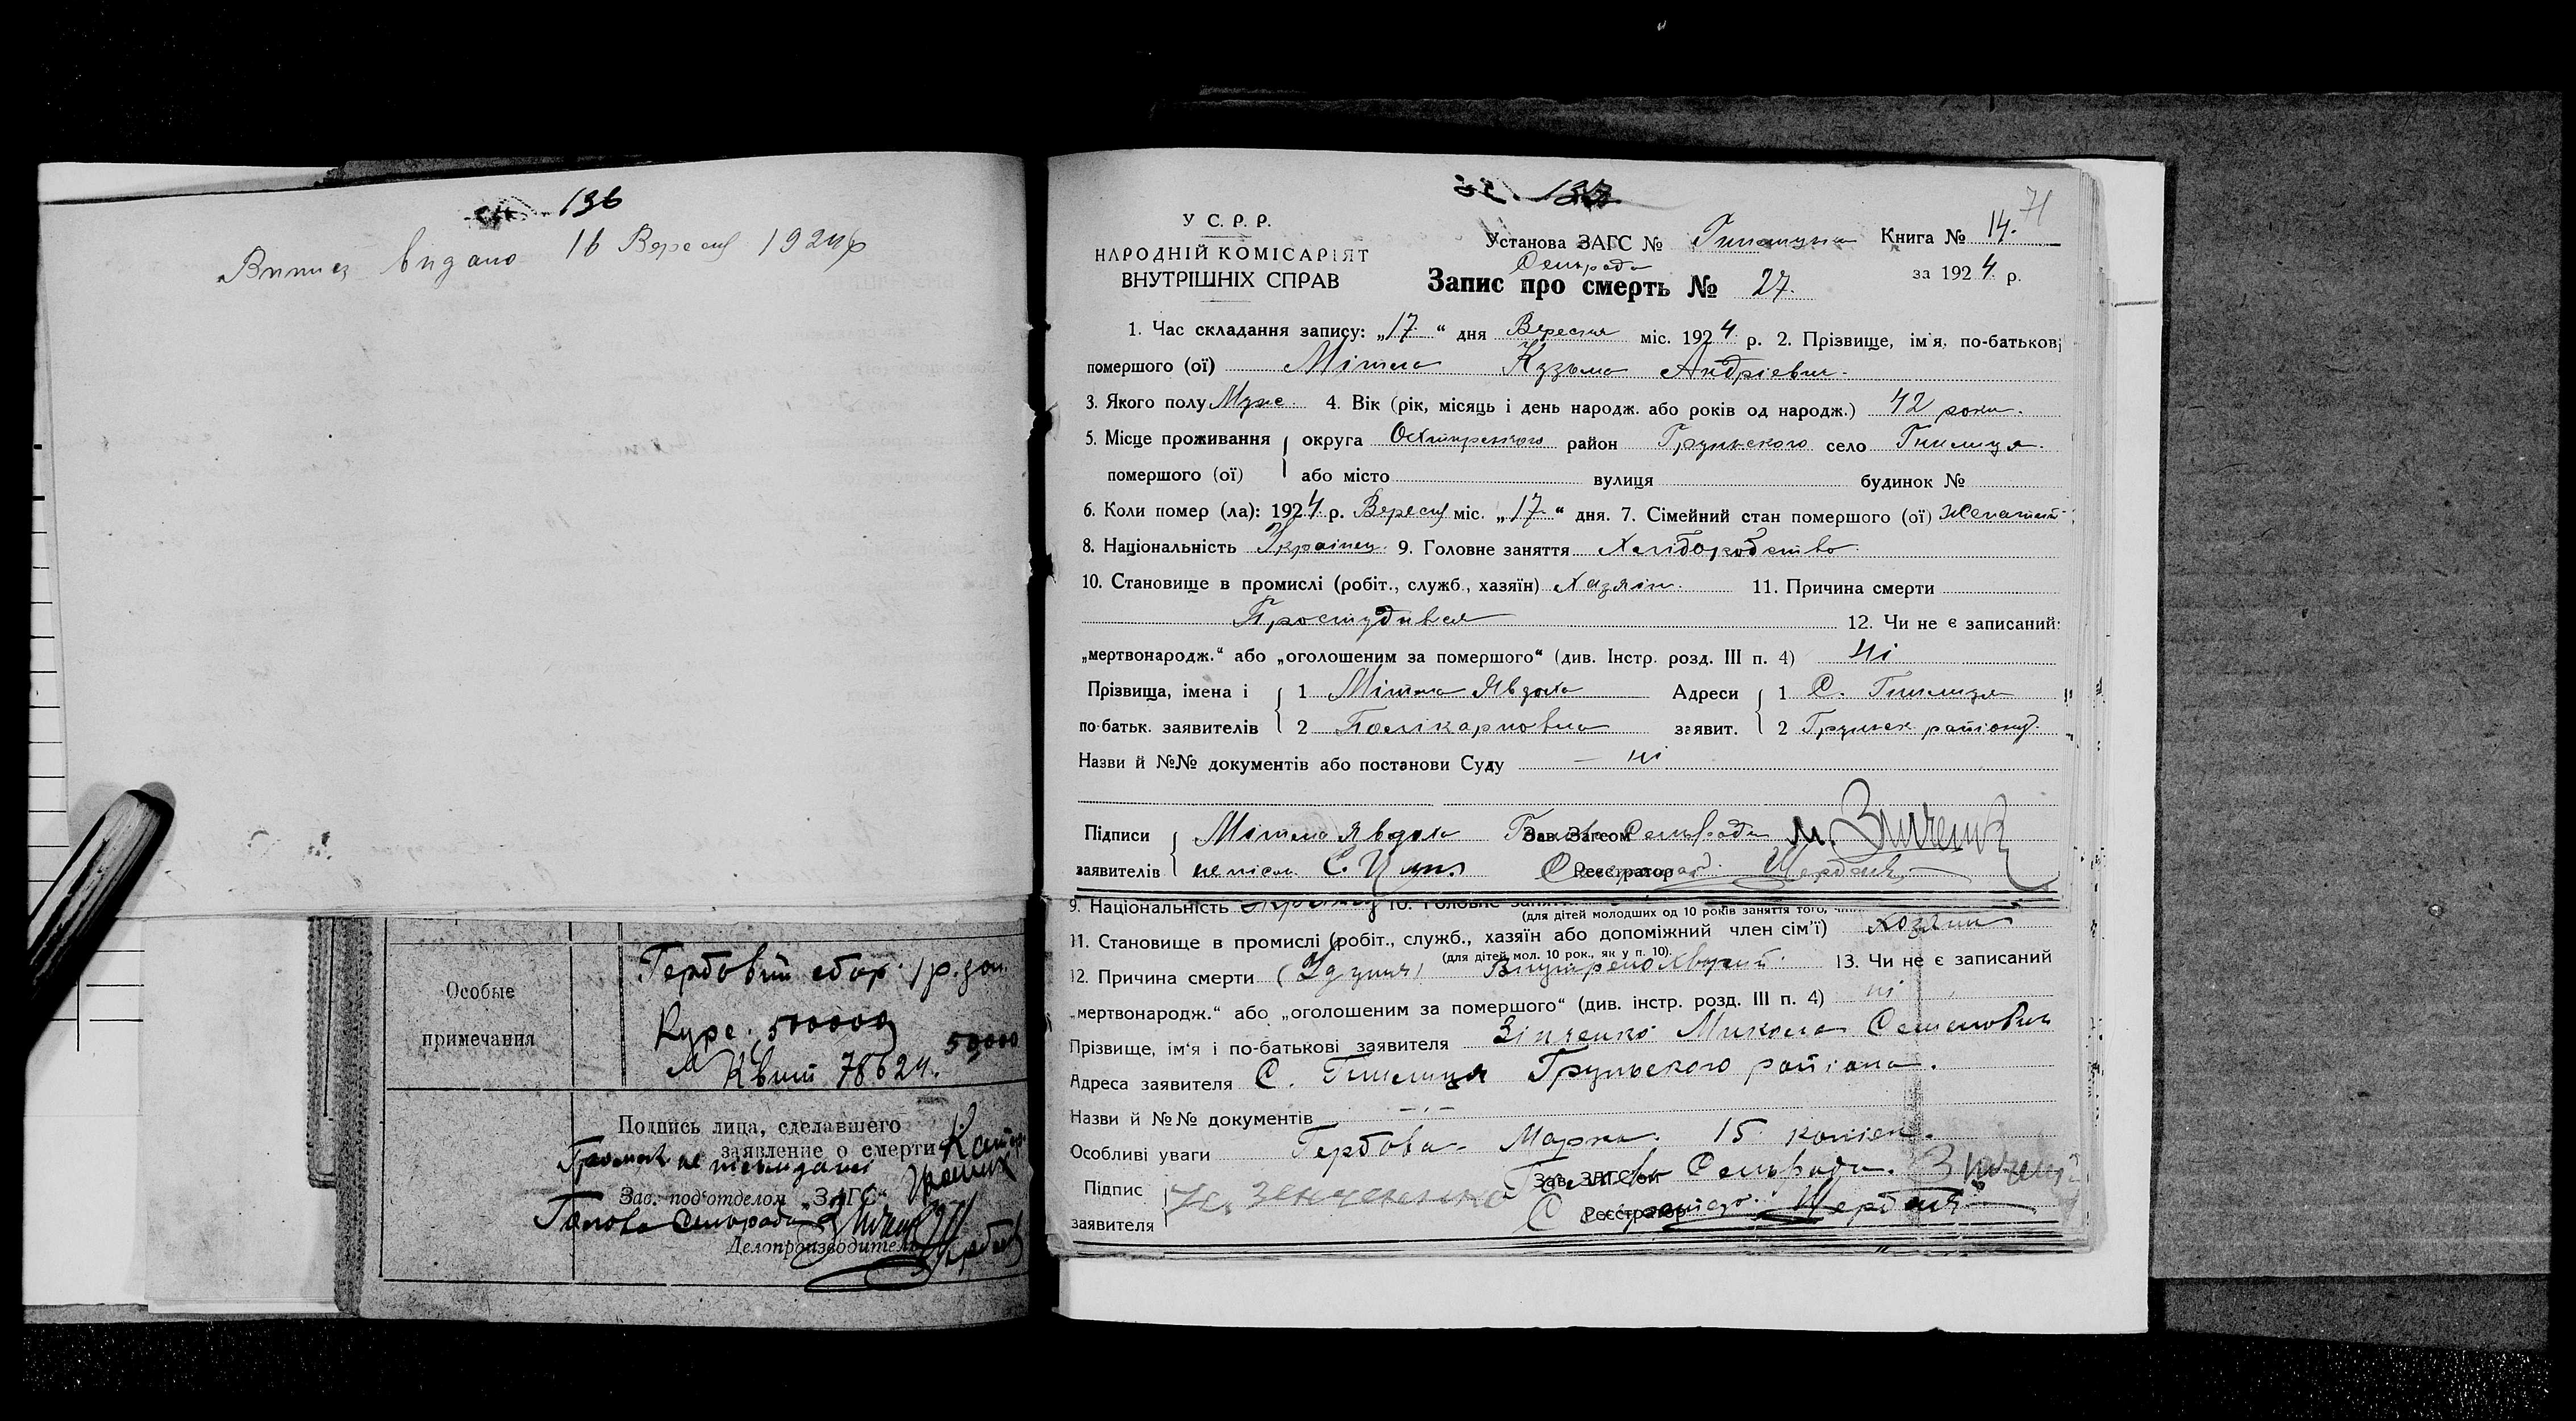 136
Випись видано 16 Вересня 1924 р
Особые
примечания
Гербовий сбор 1 р. зол.
Курс. 500000
50000
Квит 78624.
Подпись лица, сделавшего
заявление о смерти
Зав. под'отделом „ЗАГС"
Голова Сельради
Делопроизводитель
71
У С. Р. Р.
НАРОДНІЙ КОМІСАРІЯТ
ВНУТРІШНІХ СПРАВ
Установа ЗАГС № Книга № 14.
Сельрада
за 1924 р.
Запис про смерть № 27.
1. Час складання запису: „17" дня Вересня міс. 1924 р. 2. Прізвище, ім'я, по-батькові
помершого (ої) Мітла Кузьма Андрієвич.
3. Якого полу Муже. 4. Вік (рік, місяць і день народж. або років од народж.) 42 роки.
5. Місце проживання округа район Грунського село Гнилиця.
помершого (ої) або місто вулиця будинок №
6. Коли помер (ла): 1924 р. Вересня міс. „17" дня. 7. Сімейний стан помершого (ої) Женатий
8. Національність Українец. 9. Головне заняття Хлібороб ство
10. Становище в промислі (робіт., служб., хазяїн) Хазяін. 11. Причина смерти
Простудився 12. Чи не є записаний:
„мертвонародж." або „оголошеним за помершого" (див. Інстр. розд. III п. 4) ні
Прізвища, імена і 1 Мітла Явдоха Адреси 1 С. Гнилиця
по-батьк. заявителів 2 Полікарповна заявит. 2 Грунск району.
Назви й №№ документів або постанови Суду — ні
Підписи Мітла Явдоха Голова Зав. Загсом Сельради М. Зінченко
заявителів непісм. Реєстратор Щербань
9. Національність
(для дітей молодших од 10 років заняття того,
11. Становище в промислі (робіт., служб., хазяїн або допоміжний член сім'ї) Хозяин
(для дітей мол. 10 рок., як у п. 10).
12. Причина смерти 13. Чи не є записаний
„мертвонародж." або „оголошеним за помершого" (див. інстр. розд. III п. 4) ні
Прізвище, ім'я і по-батькові заявителя Зінченко Микола Семенович
Адреса заявителя С. Гнилиця Грунського района.
Назви й №№ документів — " —
Особливі уваги Гербова Марка. 15 копіек.
Підпис Голова Зав. ЗАГСом Сельради. Зінченко
заявителя Реєстратор Щербань